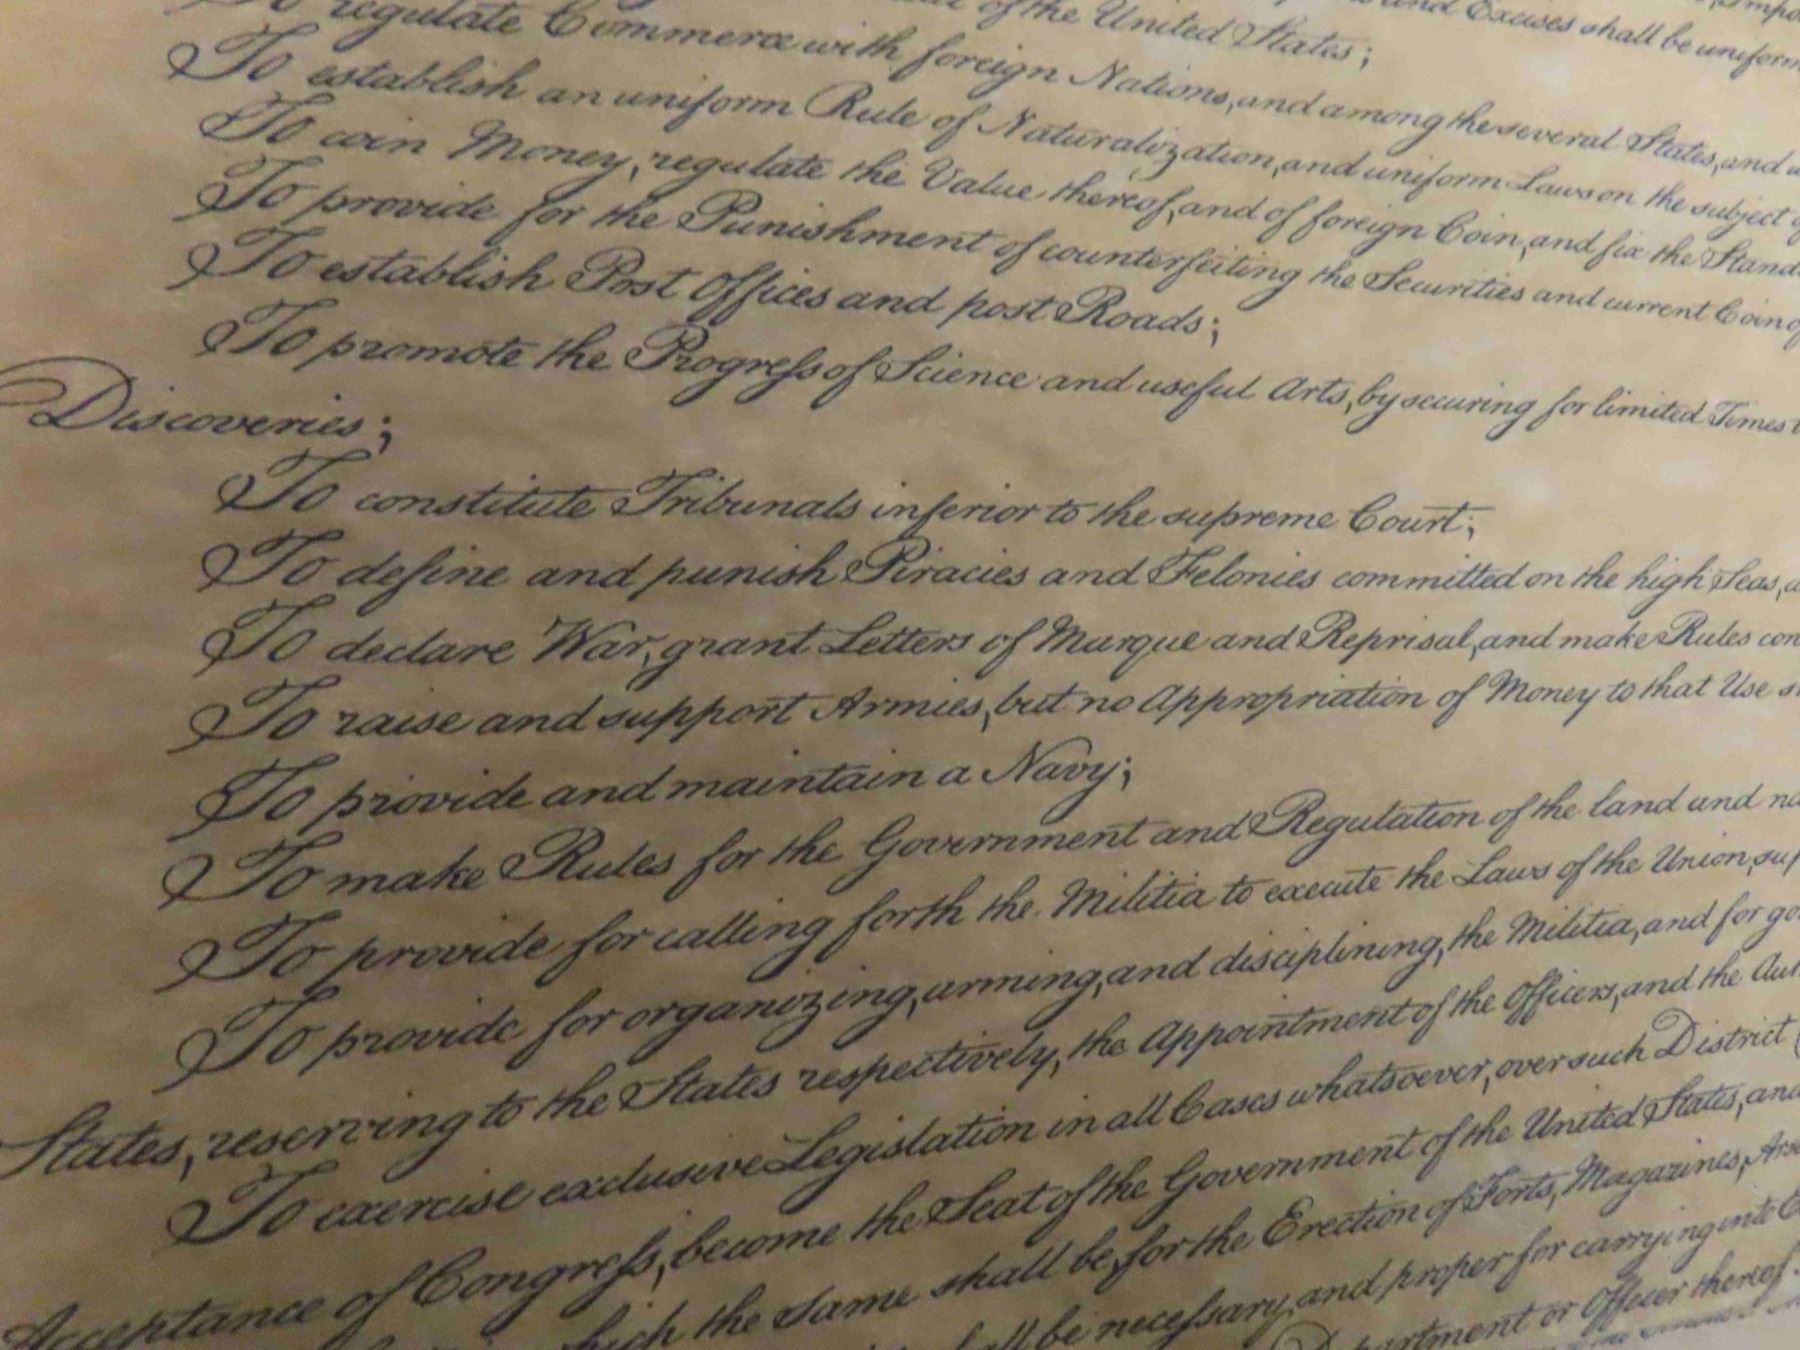 and Excises shall be uniform
of the United States;
To regulate Commerce with foreign Nations, and among the several States, and
To establish an uniform Rule of Naturalization, and uniform Laws on the subject
To coin Money, regulate the Value thereof, and of foreign Coin, and fix the Stand
To provide for the Punishment of counterfeiting the Securities and current Coin of
To establish Post Offices and post Roads;
To promote the Progress of Science and useful Arts, by securing for limited Times
Discoveries;
To constitute Tribunals inferior to the supreme Court;
To define and punish Piracies and Felonies committed on the high Seas,
To declare War, grant Letters of Marque and Reprisal, and make Rules con
To raise and support Armies, but no Appropriation of Money to that Use
To provide and maintain a Navy;
To make Rules for the Government and Regulation of the land and na
To provide for calling forth the Militia to execute the Laws of the Union, sup
To provide for organizing, arming, and disciplining, the Militia, and for go
States, reserving to the States respectively, the Appointment of the Officers, and the Aut
To exercise exclusive Legislation in all Cases whatsoever, over such District
Acceptance of Congress, become the Seat of the Government of the United States, and
which the Same shall be, for the Erection of Forts, Magazines, Arse
be necessary and proper for carrying into
Department or Officer thereof.